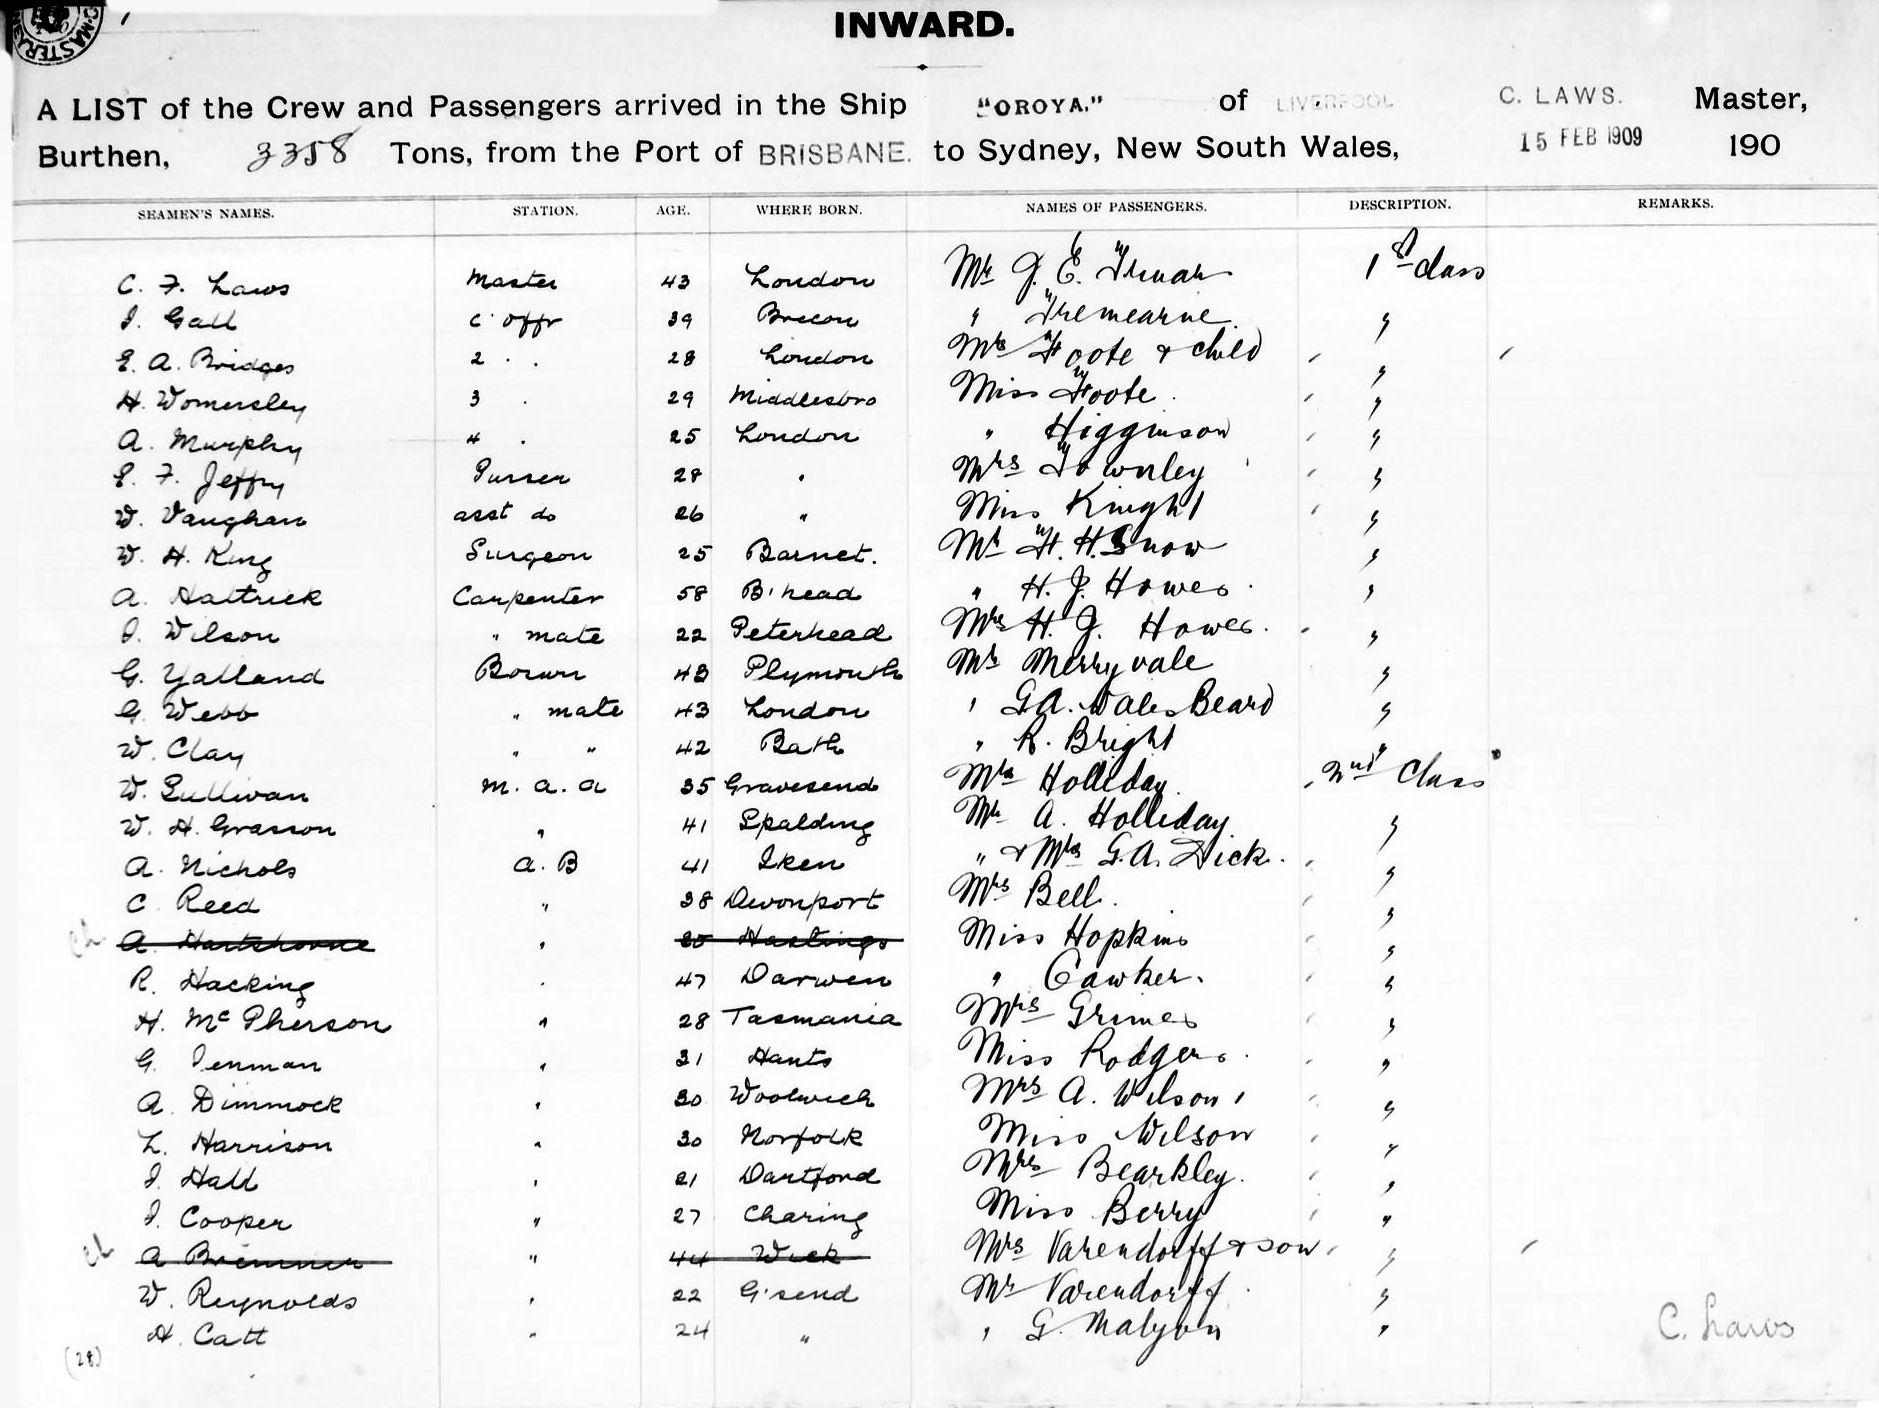 INWARD.
A LIST of the Crew and Passengers arrived in the Ship "OROYA." of LIVERPOOL C. LAWS. Master,
Burthen, 3358 Tons, from the Port of BRISBANE. to Sydney, New South Wales, 15 FEB 1909 190
SEAMEN'S NAMES. STATION. AGE. WHERE BORN. NAMES OF PASSENGERS. DESCRIPTION. REMARKS.
C. F. Laws Master 43 London Mr J. E. Truan 1st class
J. Gall C. Offr 39 Brecon " Tremearne "
E. A. Bridges 2 . . 28 London Mrs Foote & child "
H. Womersley 3 . 29 Middlesbro Miss Foote "
A. Murphy 4 . 25 London " Higginson "
E. F. Jeffry Purser 28 " Mrs Townley "
W. Vaughan asst do 26 " Miss Knight "
W. H. King Surgeon 25 Barnet. Mr F. H. Snow "
A. Hattrick Carpenter 58 B'head " H. J. Howes "
J. Wilson " mate 22 Peterhead Mrs H. J. Howes "
G. Yalland Bosun 43 Plymouth Mr Merryvale "
G. Webb " mate 43 London " G A. Wales Beard "
W. Clay " " 42 Bath " R. Bright "
W. Sullivan M. a. a 35 Gravesend Mrs Holliday 2nd Class
W. H. Grasson " 41 Spalding Mr A. Holliday "
A. Nichols A. B 41 Iken " & Mrs G. A. Dick "
C. Reed " 38 Devonport Mrs Bell "
A. Hartshorne " 30 Hastings Miss Hopkins "
R. Hacking " 47 Darwen " Cawker "
H. McPherson " 28 Tasmania Mrs Grimes "
G. Penman " 31 Hants Miss Rodgers "
A. Dimmock " 30 Woolwich Mrs A. Wilson "
L. Harrison " 30 Norfolk Miss Wilson "
J. Hall " 21 Dartford Mrs Bearkley "
J. Cooper " 27 Charing Miss Berry "
A Bremner " 44 Wick Mrs Varendorff & son "
W. Reynolds " 22 G'send Mr Varendorff "
H. Catt " 24 " " G. Malyon "
C. Laws
(28)